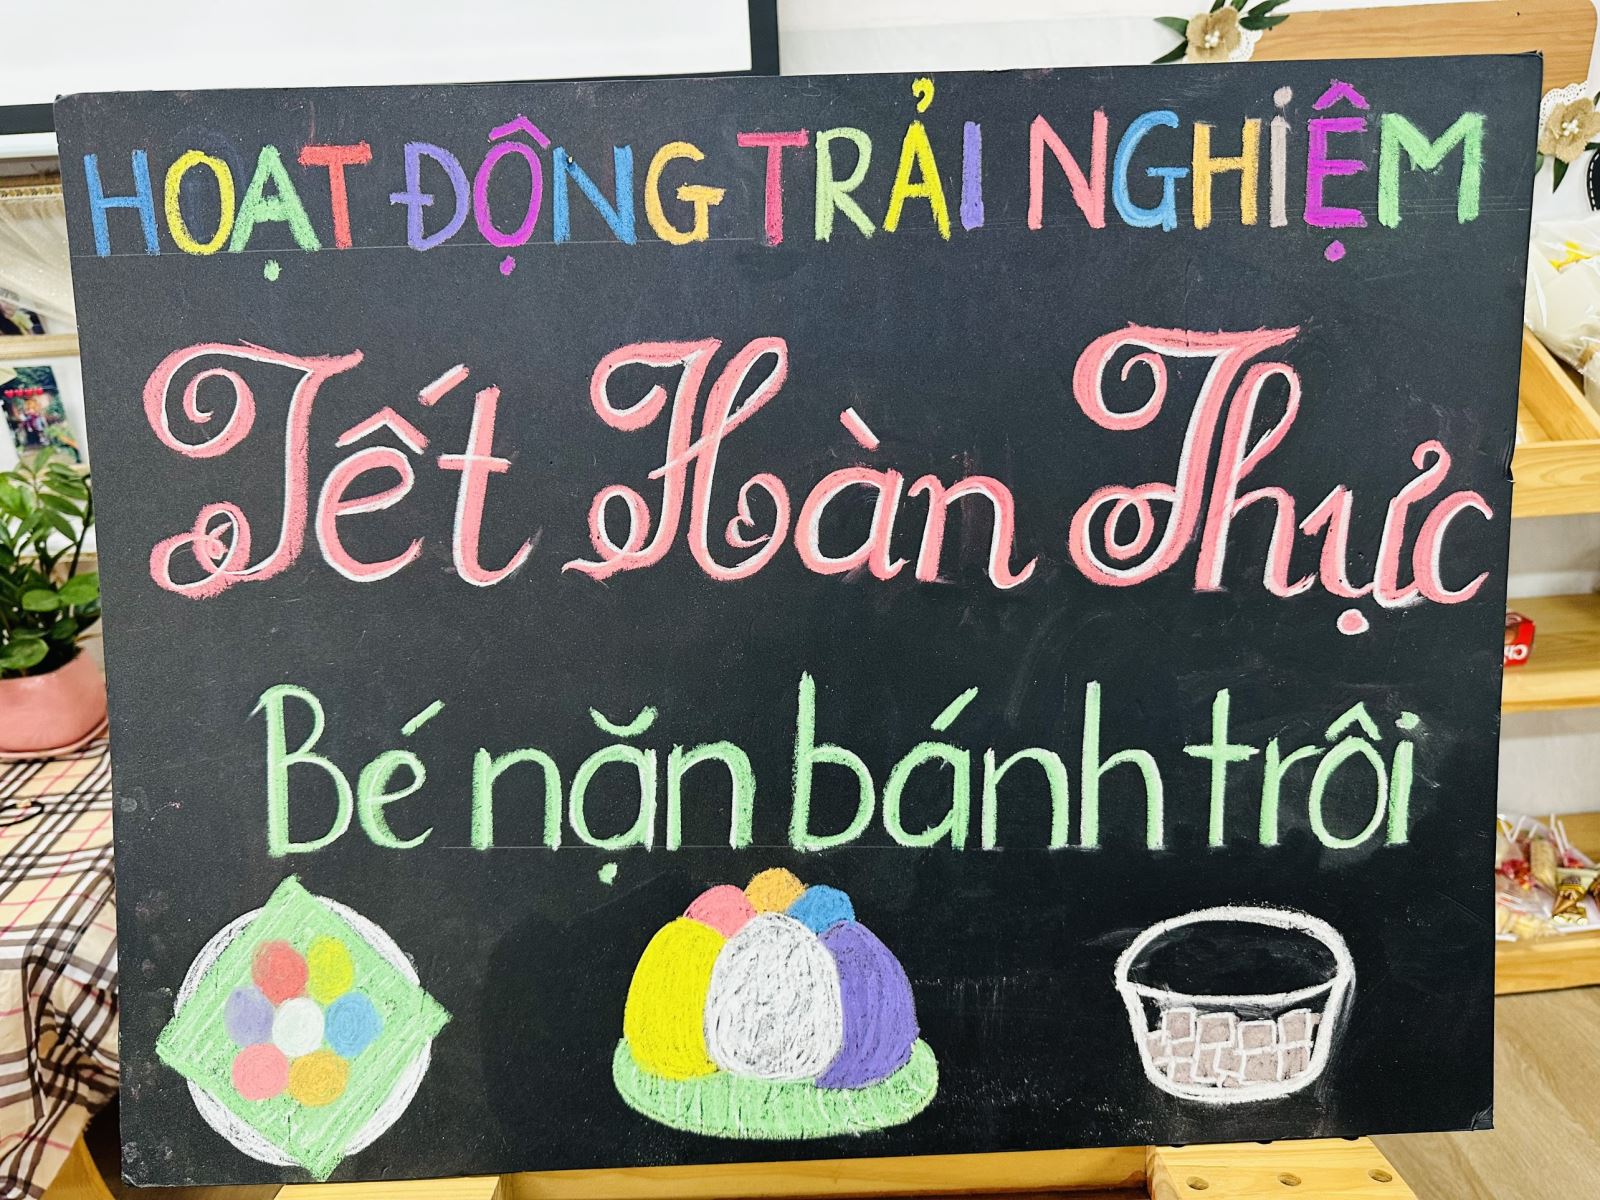 HOẠT ĐỘNG TRẢI NGHIỆM
Tết Hàn Thực
Bé nặn bánh trôi